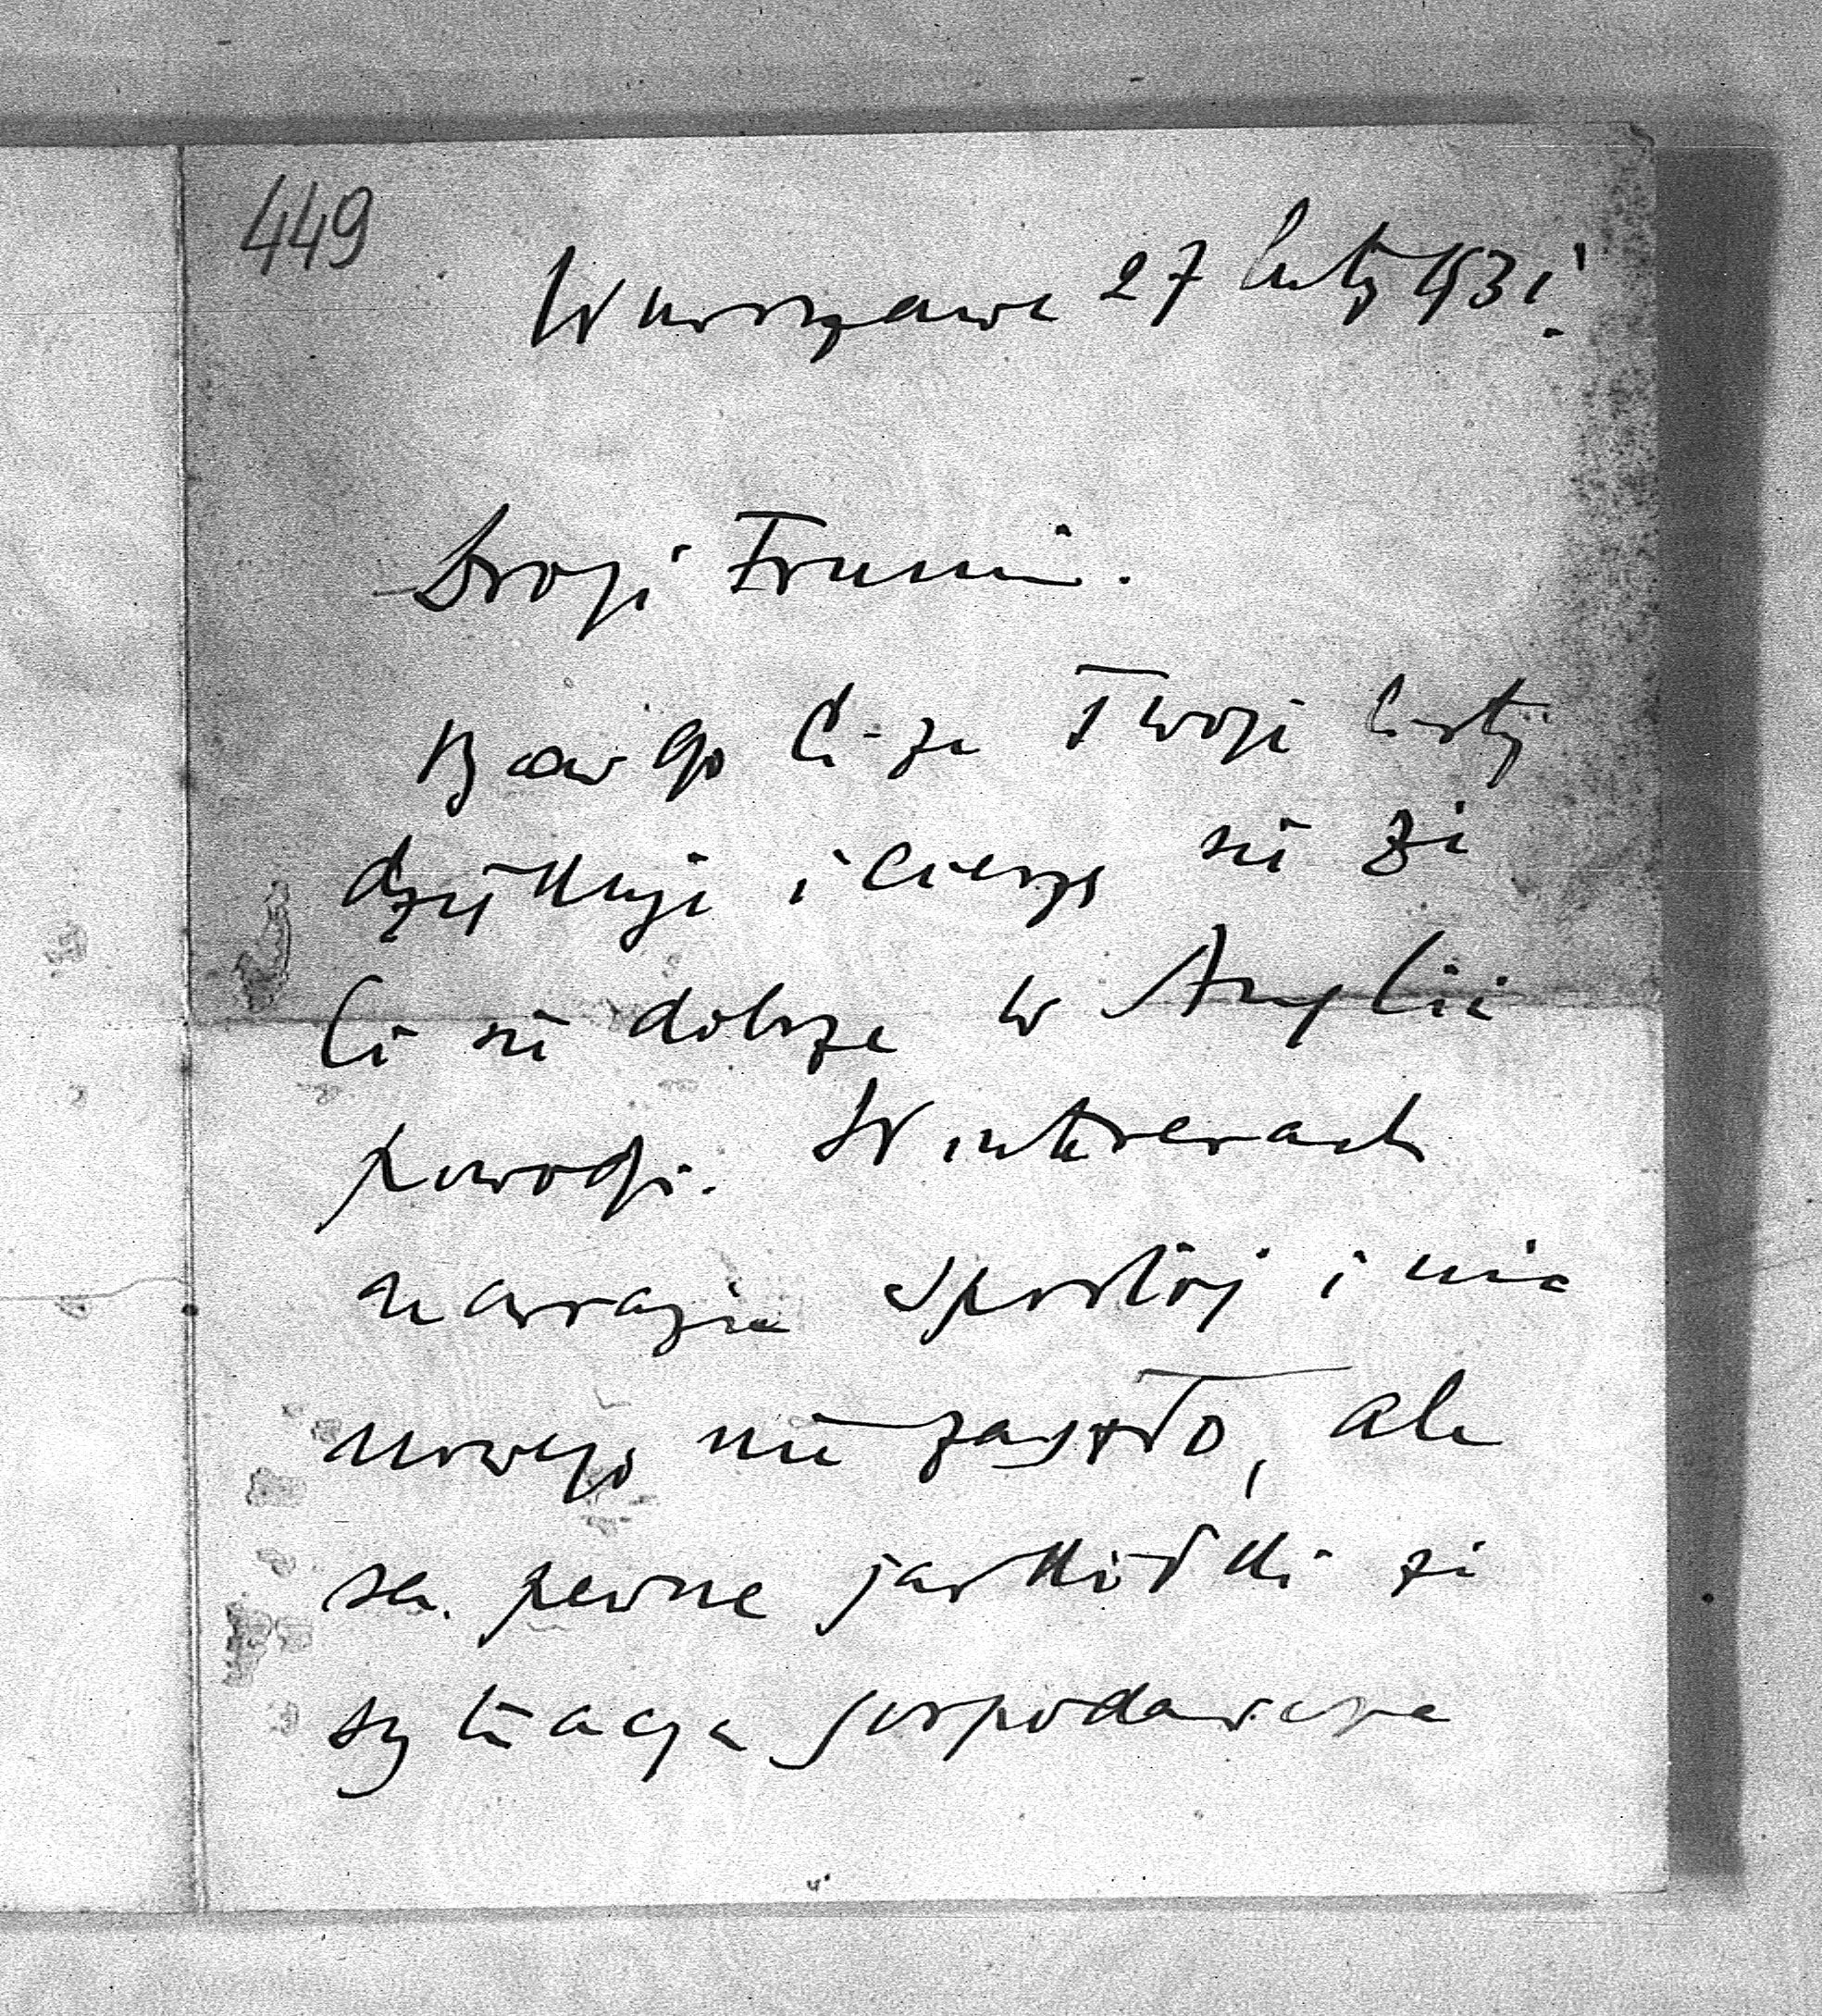 449
Warszawa 27 luty 1931.
Drogi Franiu.
Bardzo Ci za Twoje listy
dziękuję i cieszę się że
Ci się dobrze w Anglii
powodzi. W interesach
narazie spokój i nic
nowego nie zaszło, ale
są pewne jaskółki że
sytuacja gospodarcza